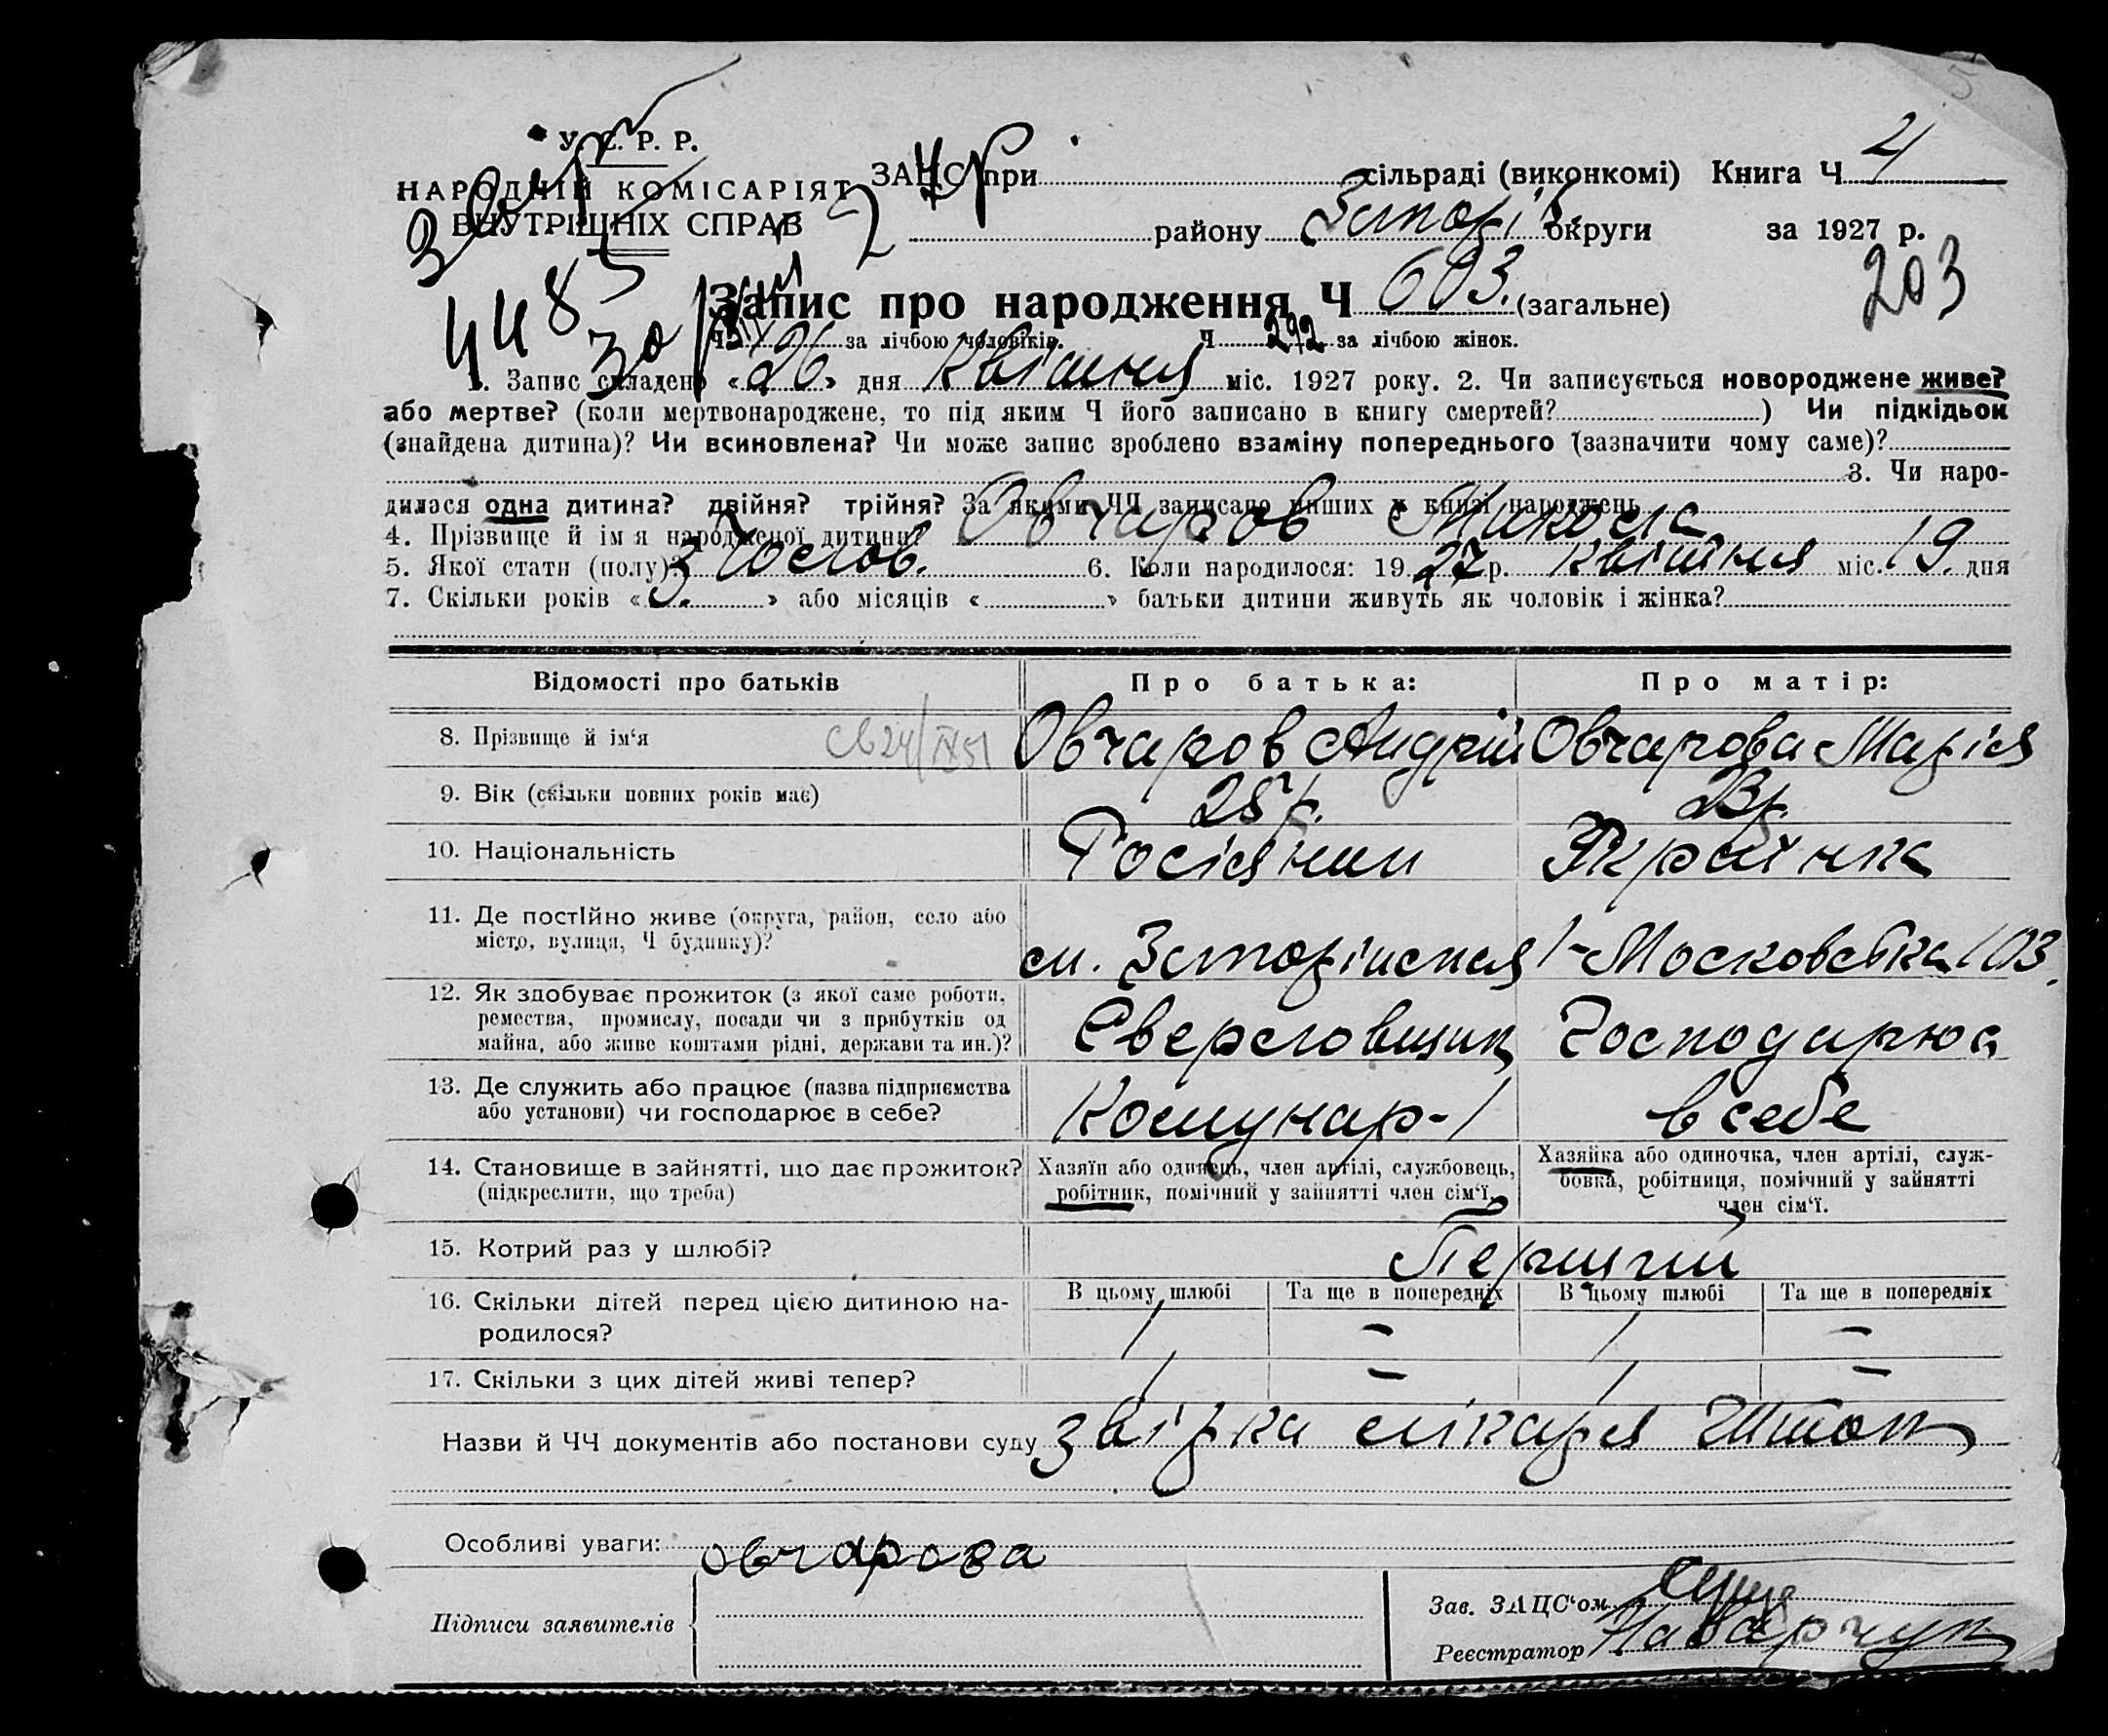 У. С. Р. Р.
НАРОДНІЙ КОМІСАРІЯТ
ВНУТРІШНІХ СПРАВ
ЗАЦС при сільраді (виконкомі) Книга Ч 4
району Запоріз. округи за 1927 р.
203
Запис про народження Ч 603. (загальне)
Ч за лічбою чоловіків. Ч 292 за лічбою жінок.
448
1. Запис складено « 26 » дня Квітня міс. 1927 року. 2. Чи записується новороджене живе?
або мертве? (коли мертвонароджене, то під яким Ч його записано в книгу смертей? ) Чи підкідьок
(знайдена дитина)? Чи всиновлена? Чи може запис зроблено взаміну попереднього (зазначити чому саме)?
3. Чи наро-
дилася одна дитина? двійня? трійня? За якими ЧЧ записано инших у книзі народжень
4. Прізвище й ім'я народженої дитини? Овчаров Микола
5. Якої стати (полу)? Чолов. 6. Коли народилося: 19 27 р. Квітня міс. 19. дня
7. Скільки років « 3. » або місяців « » батьки дитини живуть як чоловік і жінка?
Відомості про батьків Про батька: Про матір:
8. Прізвище й ім'я Овчаров Андрій Овчарова Марія
9. Вік (скільки повних років має) 25 р. 23 р.
10. Національність Росіянин Українка
11. Де постійно живе (округа, район, село або
місто, вулиця, Ч будинку)? 1-Московська 103.
12. Як здобуває прожиток (з якої саме роботи,
ремества, промислу, посади чи з прибутків од
майна, або живе коштами рідні, держави та ин.)? Сверловщик Господарює
13. Де служить або працює (назва підприємства
або установи) чи господарює в себе? Комунар-1 в себе
14. Становище в зайнятті, що дає прожиток?
(підкреслити, що треба)
Хазяїн або одинець, член артілі, службовець,
робітник, помічний у зайнятті член сім'ї.
Хазяйка або одиночка, член артілі, служ-
бовка, робітниця, помічний у зайнятті
член сім'ї.
15. Котрий раз у шлюбі? Перший
16. Скільки дітей перед цією дитиною на-
родилося?
В цьому шлюбі Та ще в попередніх В цьому шлюбі Та ще в попередніх
1 – 1 –
17. Скільки з цих дітей живі тепер? 1 – 1 –
Назви й ЧЧ документів або постанови суду лікаря
Особливі уваги: овчарова
Підписи заявителів
Зав. ЗАЦС'ом
Реєстратор